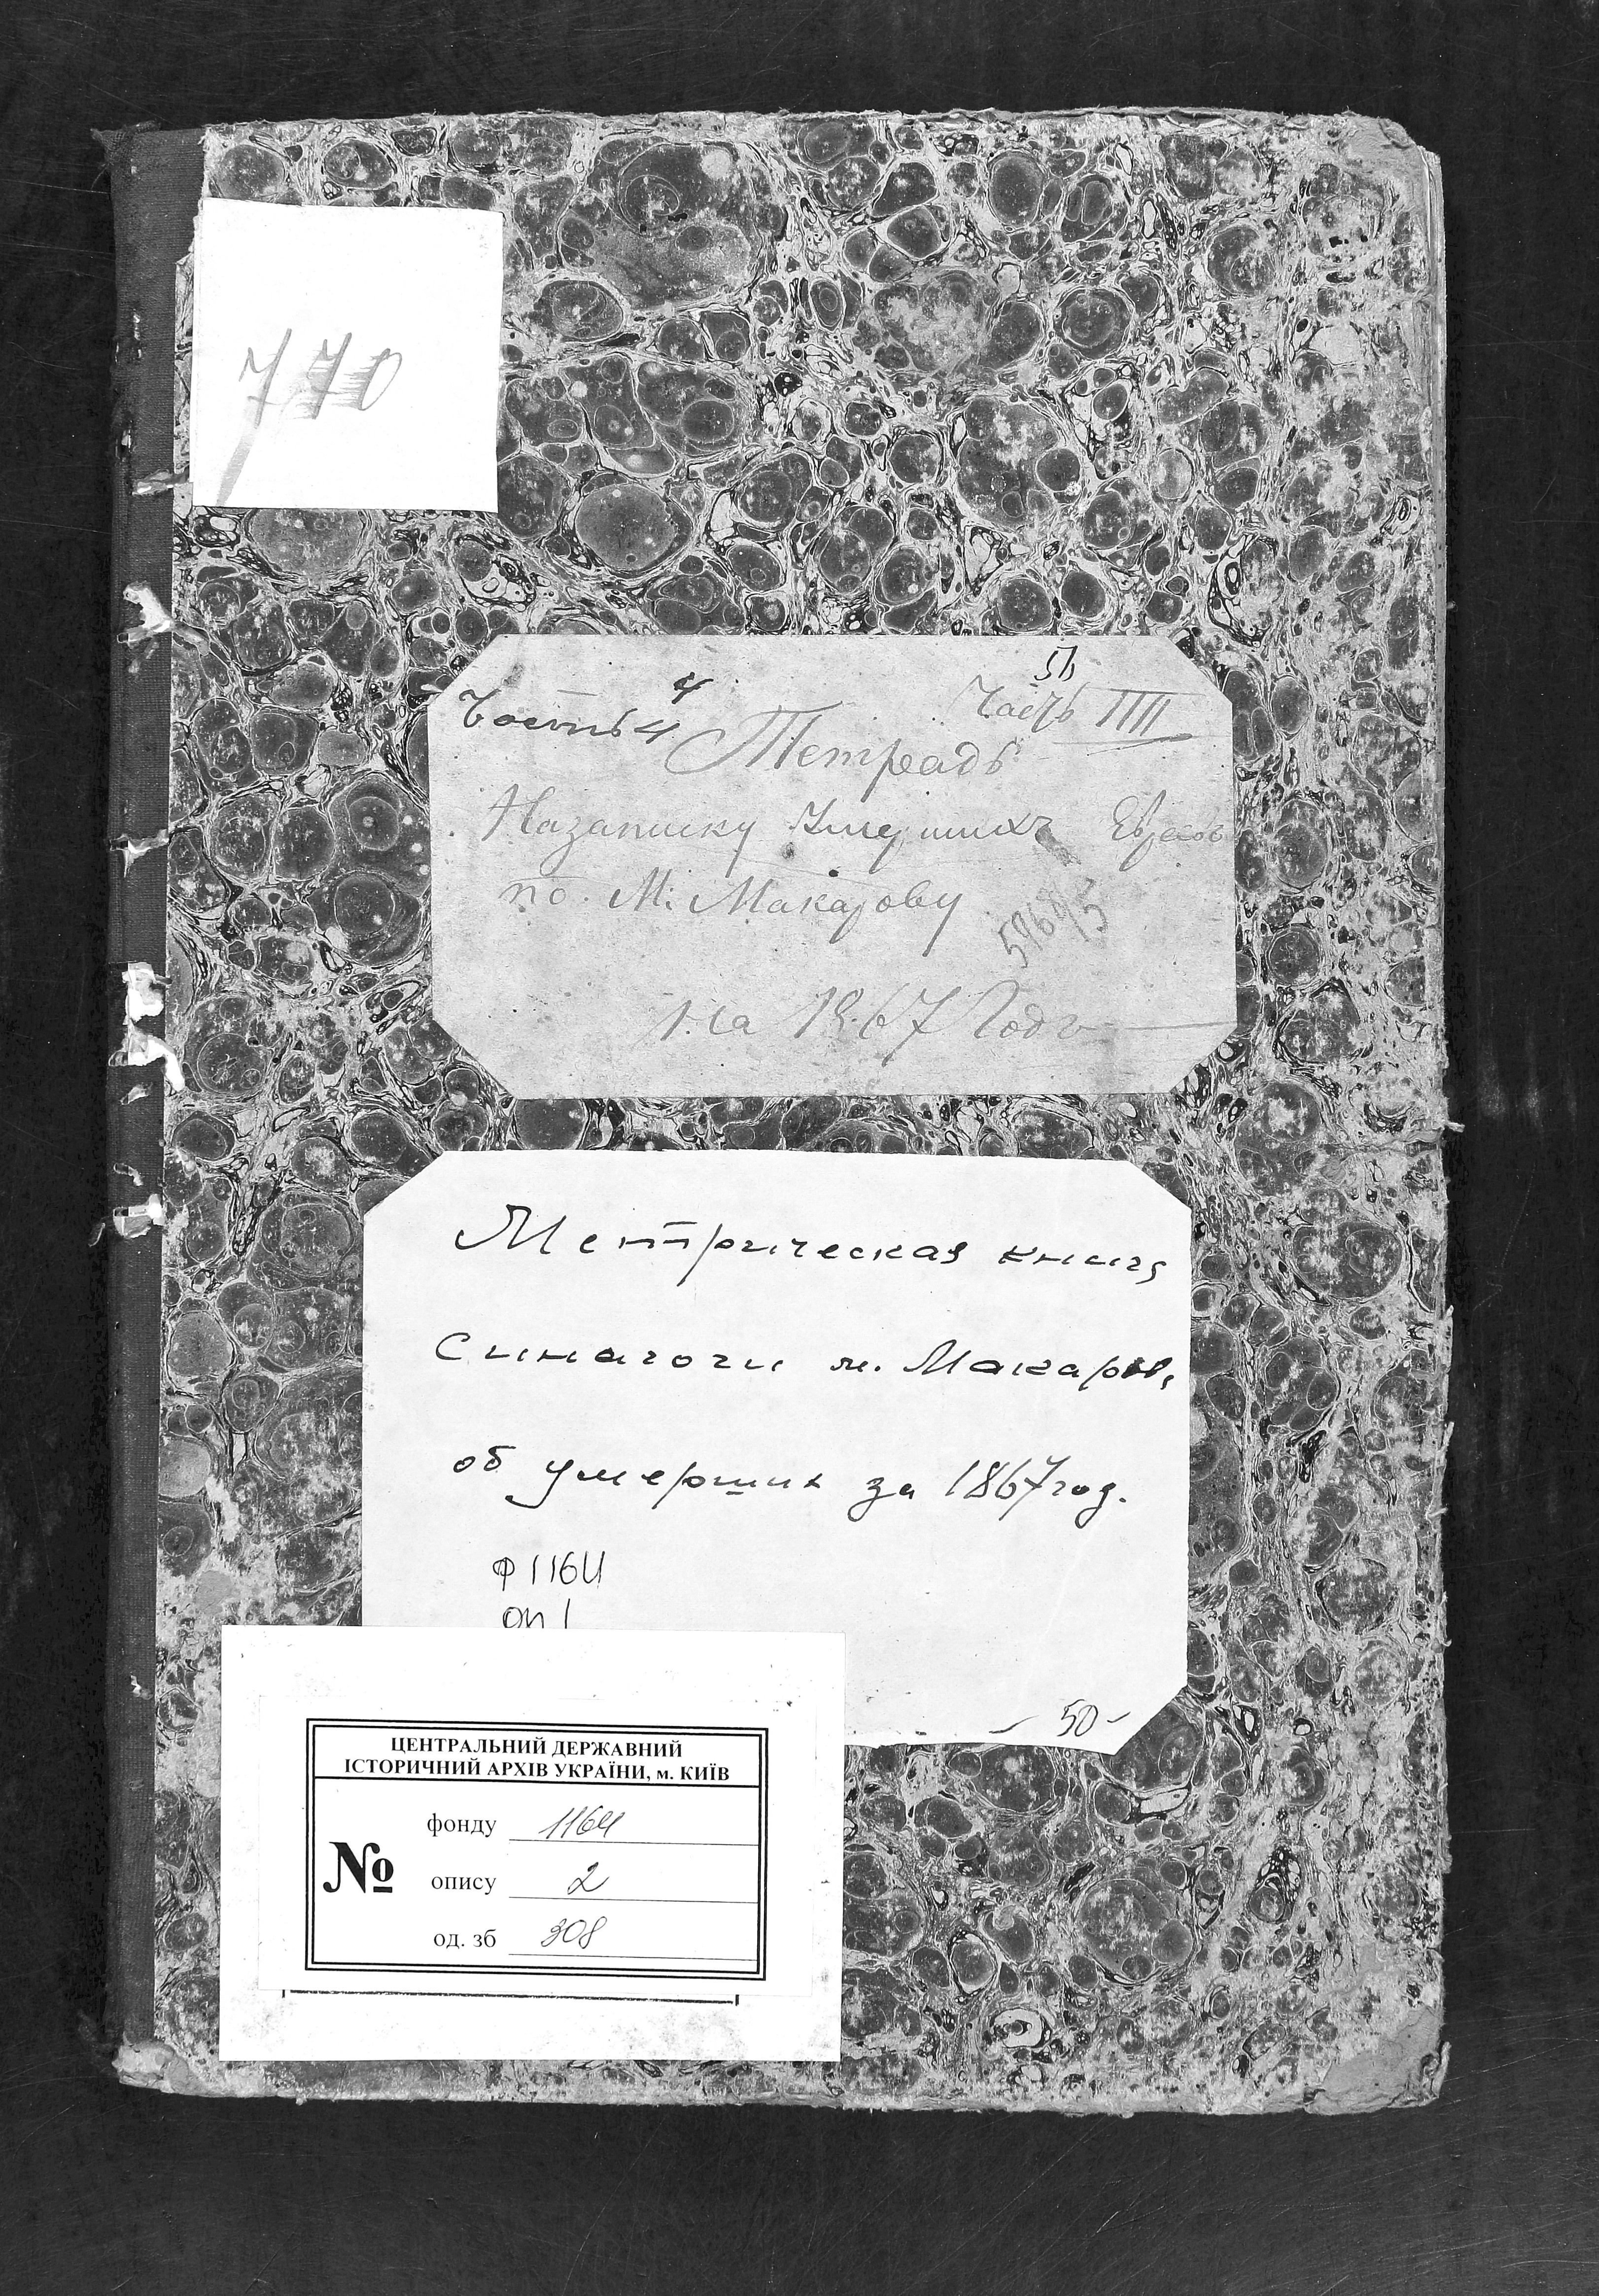 770
51
4
Часть 4 Часть IIII
Тетрадь
Назаписку Умершихъ Евреевъ
по. М: Макарову
на 1867 Годъ
Метрическая книга
Синагоги м. Макаров,
об умерших за 1867 год.
Ф 1164
оп 1
- 50 -
ЦЕНТРАЛЬНИЙ ДЕРЖАВНИЙ
ІСТОРИЧНИЙ АРХІВ УКРАЇНИ, м. КИЇВ
фонду 1164
№ опису 2
од. зб 308